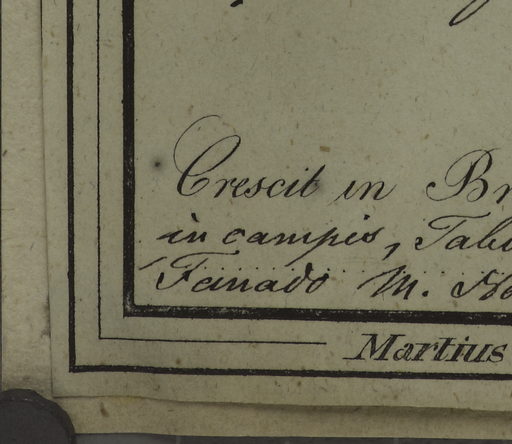 Crescit in Br
in campis, Tabu
Fanado M.
Martius